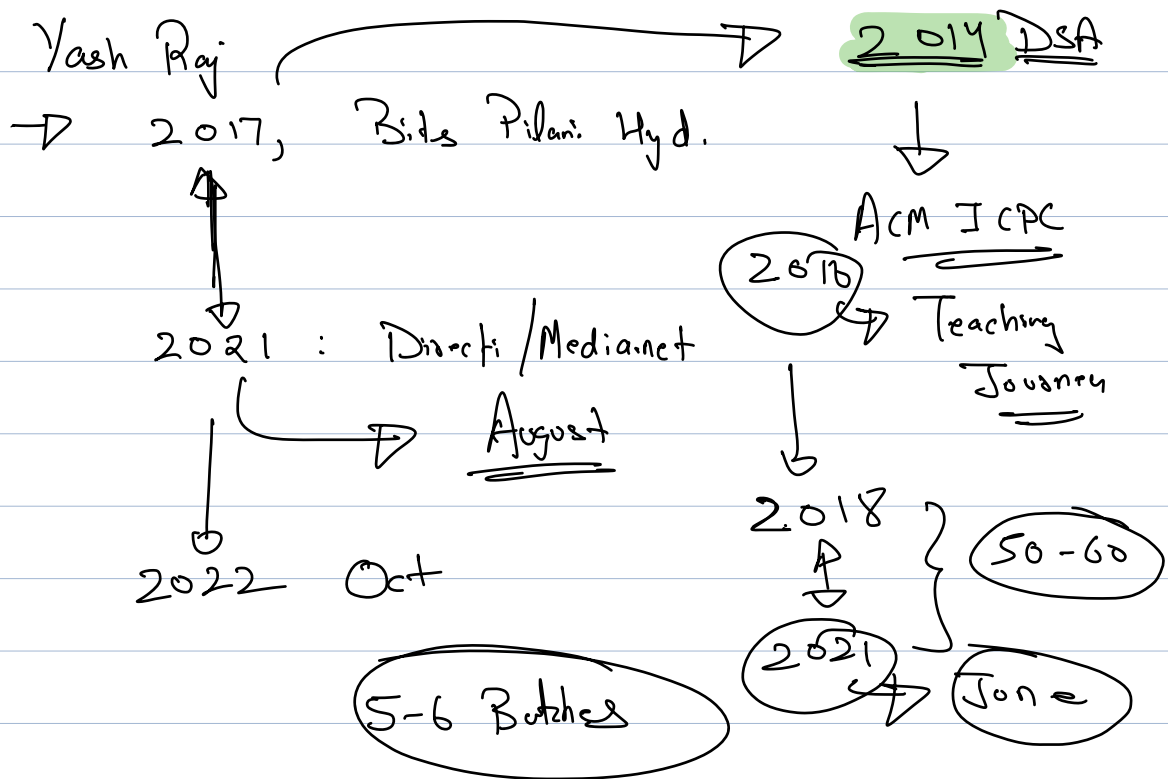 Yash Raj
2014 DSA
2017, Bits Pilani Hyd.
ACM ICPC
2016
Teaching
Journey
2021 : Directi/Media.net
August
2018
50-60
2022 Oct
2021
June
5-6 Batches